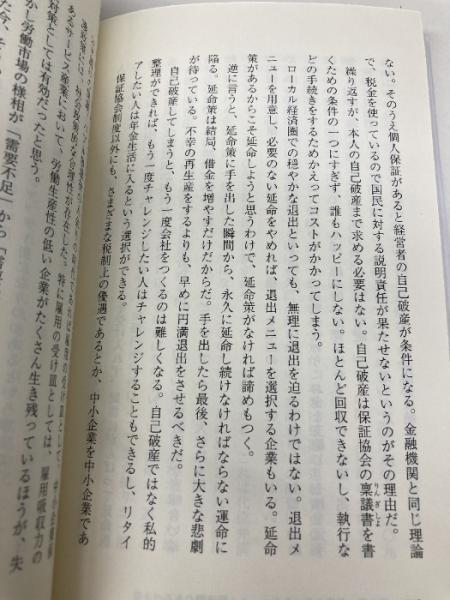 ない。そのうえ個人保証があると経営者の自己破産が条件になる。金融機関と同じ理論
で、税金を使っているので国民に対する説明責任が果たせないというのがその理由だ。
繰り返すが、本人の自己破産まで求める必要はない。自己破産は保証協会の稟議書を書
りんぎしょ
くための条件の一つにすぎず、誰もハッピーにしない。ほとんど回収できないし、執行な
どの手続きをするためかえってコストがかかってしまう。
ローカル経済圏での穏やかな退出といっても、無理に退出を迫るわけではない。退出メ
ニューを用意し、必要のない延命をやめれば、退出メニューを選択する企業もいる。延命
策があるからこそ延命しようと思うわけで、延命策がなければ諦めもつく。
逆に言うと、延命策に手を出した瞬間から、永久に延命し続けなければならない運命に
陥る。延命策は結局、借金を増やすだけだからだ。手を出したら最後、さらに大きな悲劇
が待っている。不幸の再生産をするよりも、早めに円満退出をさせるべきだ。
自己破産してしまうと、もう一度会社をつくるのは難しくなる。自己破産ではなく私的
整理ができれば、もう一度チャレンジしたい人はチャレンジすることもできるし、リタイ
アしたい人は年金生活に入るという選択ができる。
保証協会制度以外にも、さまざまな税制上の優遇であるとか、中小企業を中小企業であ
あるサービス産業において、労働生産性の低い企業がたくさん生き残っているほうが、失
対策としては有効だったと思う。
かし労働市場の様相が「需要不足」から